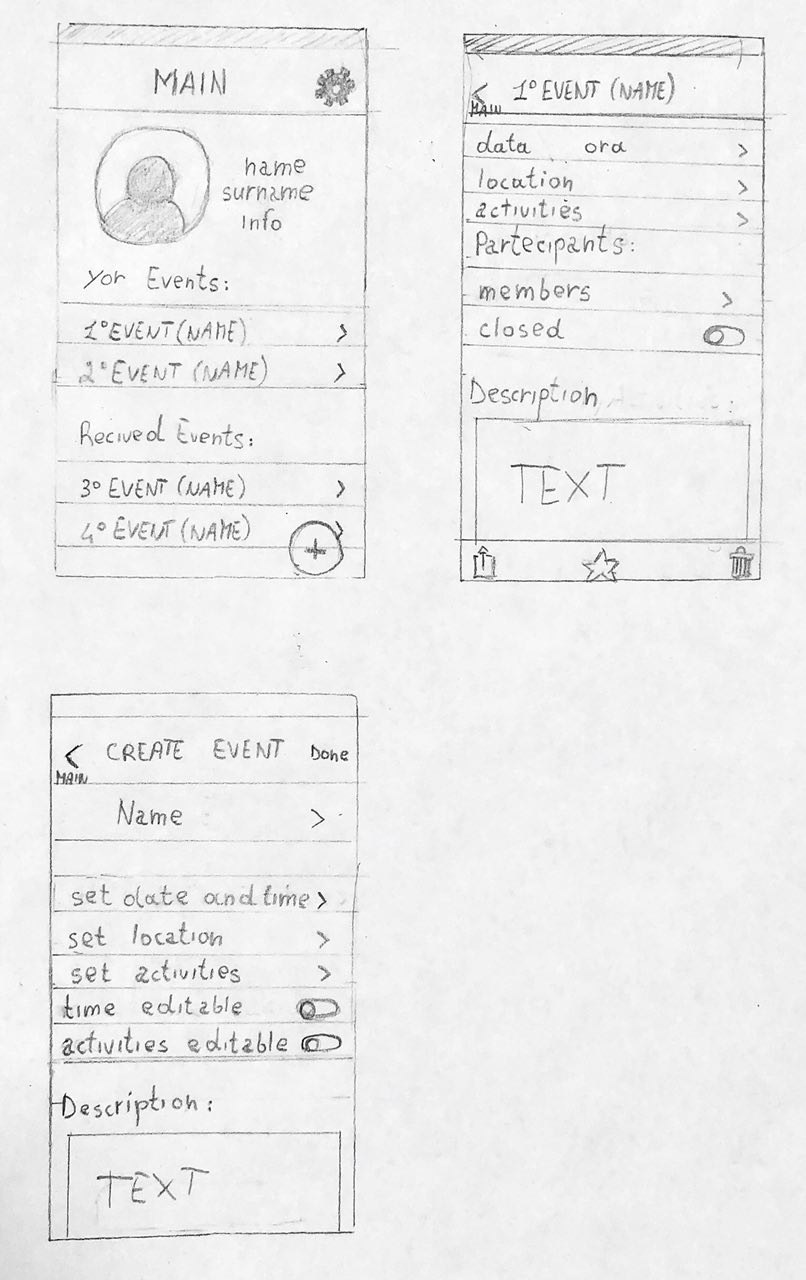 MAIN
name
surname
info
Yor Events:
1° EVENT (NAME)
2° EVENT (NAME)
Recived Events:
3° EVENT (NAME)
4° EVENT (NAME)
1° EVENT (NAME)
MAIN
data ora
location
activities
Partecipants:
members
closed
Description
TEXT
CREATE EVENT Done
MAIN
Name
set date and time
set location
set activities
time editable
activities editable
Description:
TEXT